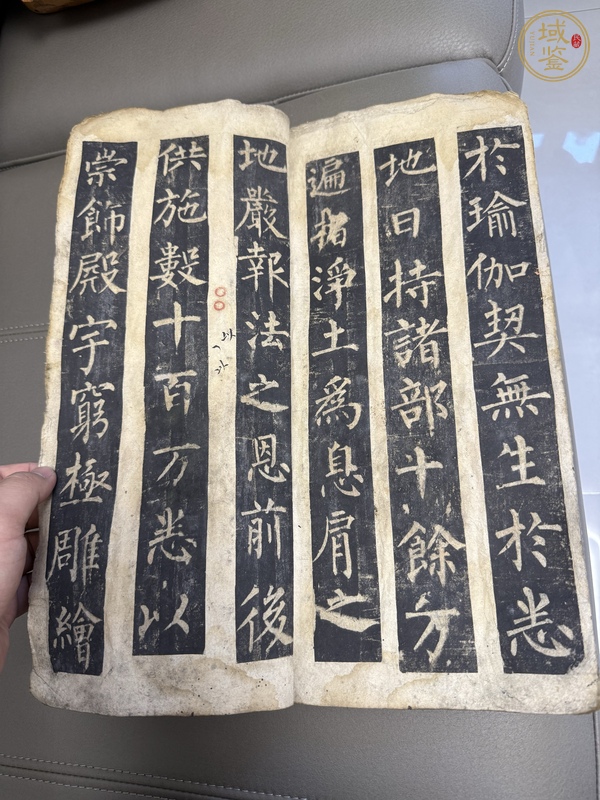 於瑜伽契無生於悉
地日持諸部十餘万
遍指淨土爲息肩之
地嚴報法之恩前後
供施數十百万悉以
崇飾殿宇窮極雕繪
域鉴